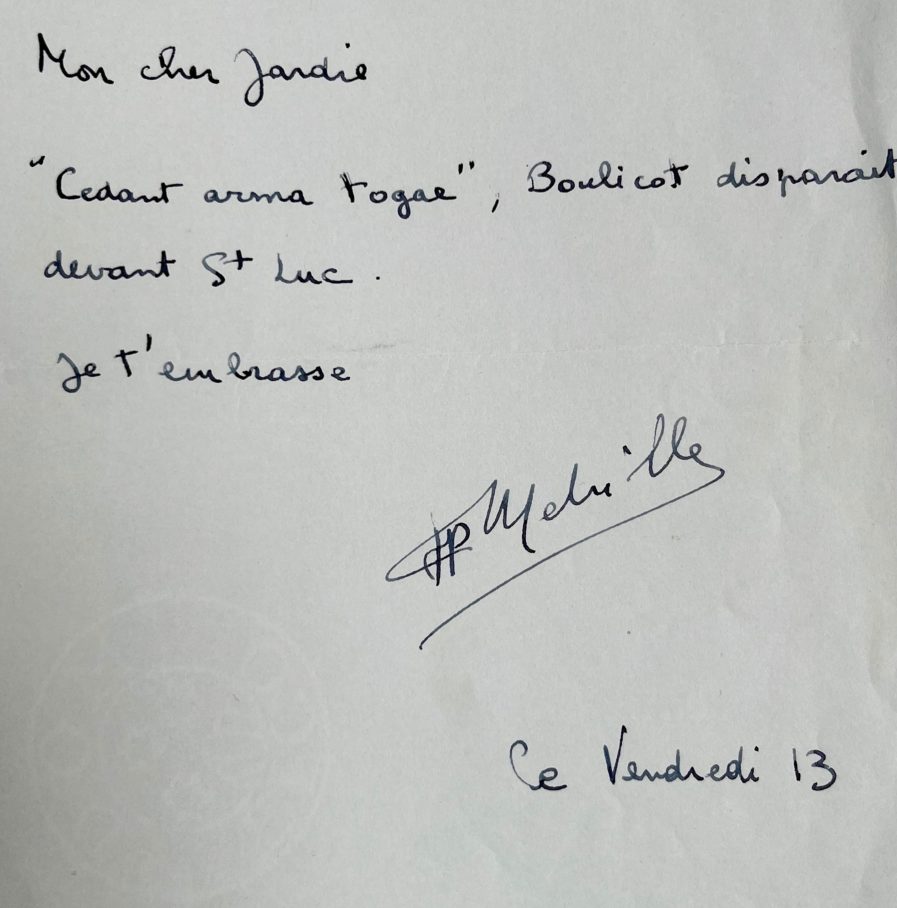 Mon cher Jardie
"Cedant arma togae", Boulicot disparaît
devant St Luc.
Je t'embrasse
JP Melville
Ce Vendredi 13